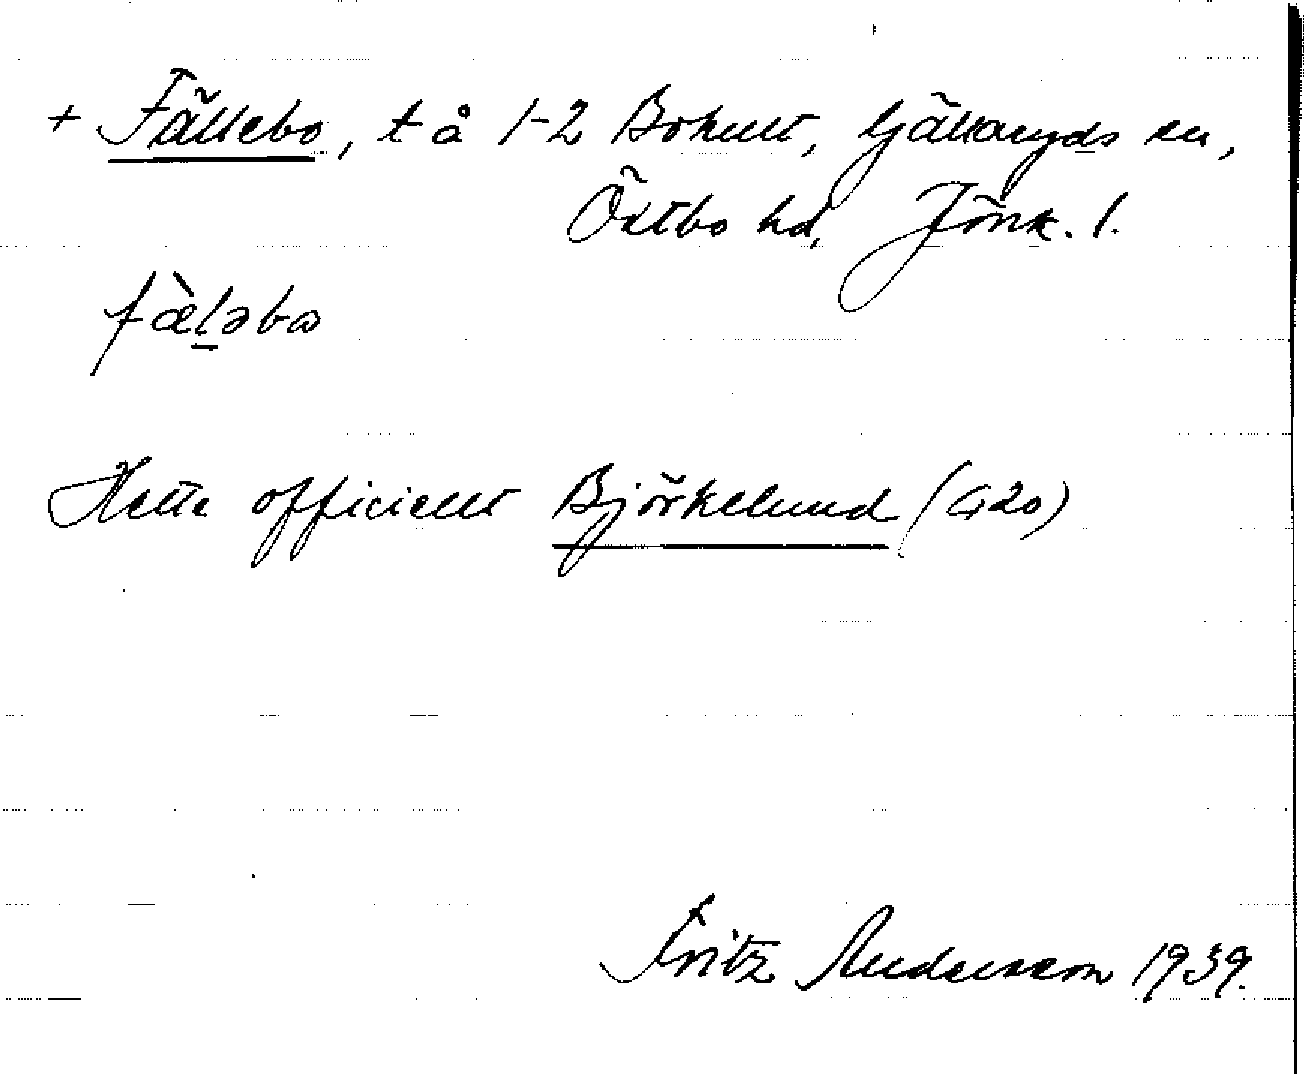 + Fällebo, t å 1-2 Bohult, Gällaryds sn,
Östbo hd, Jönk. l.
fæ̀l̠əbɷ
Hette officiellt Björkelund (G20)
Fritz Andersson 1939.